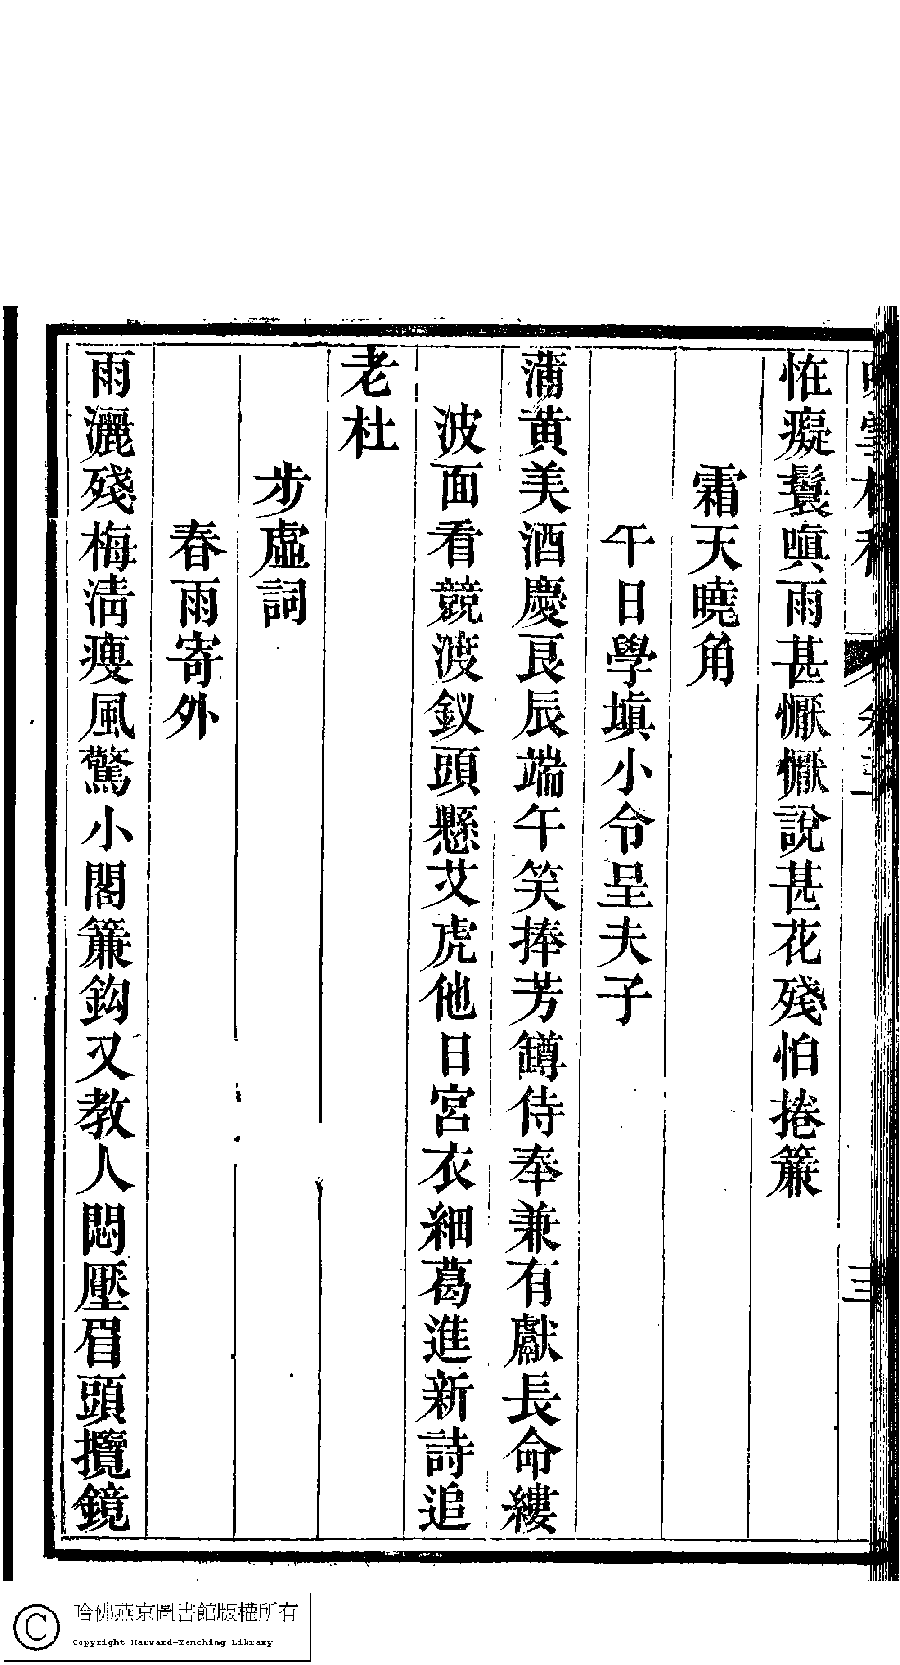 恠癡鬟嗔雨甚懨懨說甚花殘怕捲簾
霜天曉角
午日學塡小令呈夫子
蒲黃美酒慶良辰端午笑捧芳罇侍奉兼有獻長命縷
波面看競渡釵頭懸艾虎他日宮衣細葛進新詩追
老杜
步虛詞
春雨寄外
雨灑殘梅淸瘦風驚小閣簾鈎又教人悶壓眉頭攬鏡
三
哈佛燕京圖書館版權所有
Copyright Harvard-Yenching Library